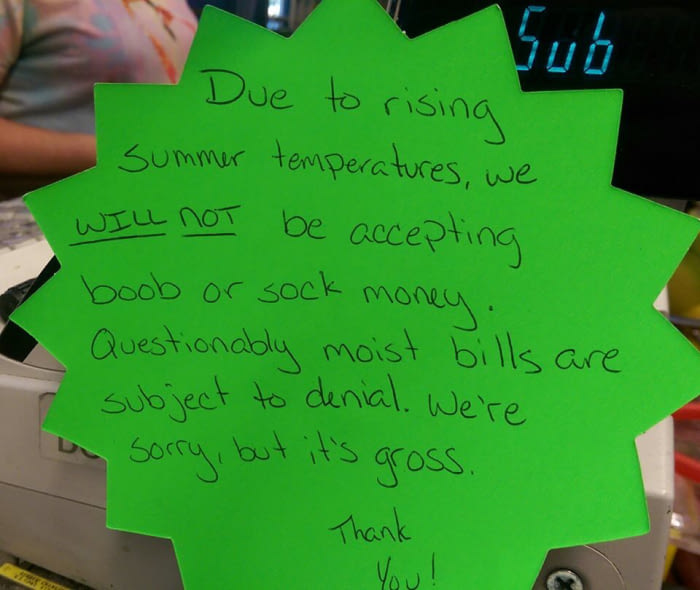 Sub
Due to rising
summer temperatures, we
WILL NOT be accepting
boob or sock money.
Questionably moist bills are
subject to denial. We're
sorry, but it's gross.
Thank
You!